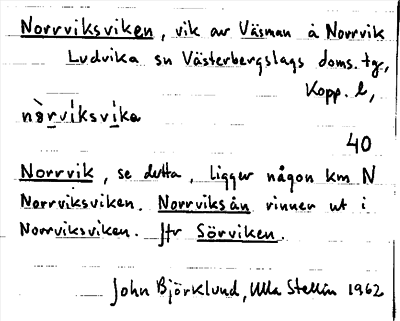 Norrviksviken, vik av Väsman å Norrvik
Ludvika sn Västerbergslags doms. tg,
Kopp. l,
nòrvíksvíka
40
Norrvik, se detta, ligger någon km N
Norrviksviken. Norrviksån rinner ut i
Norrviksviken. Jfr Sörviken.
John Björklund, Ulla Stellin 1962